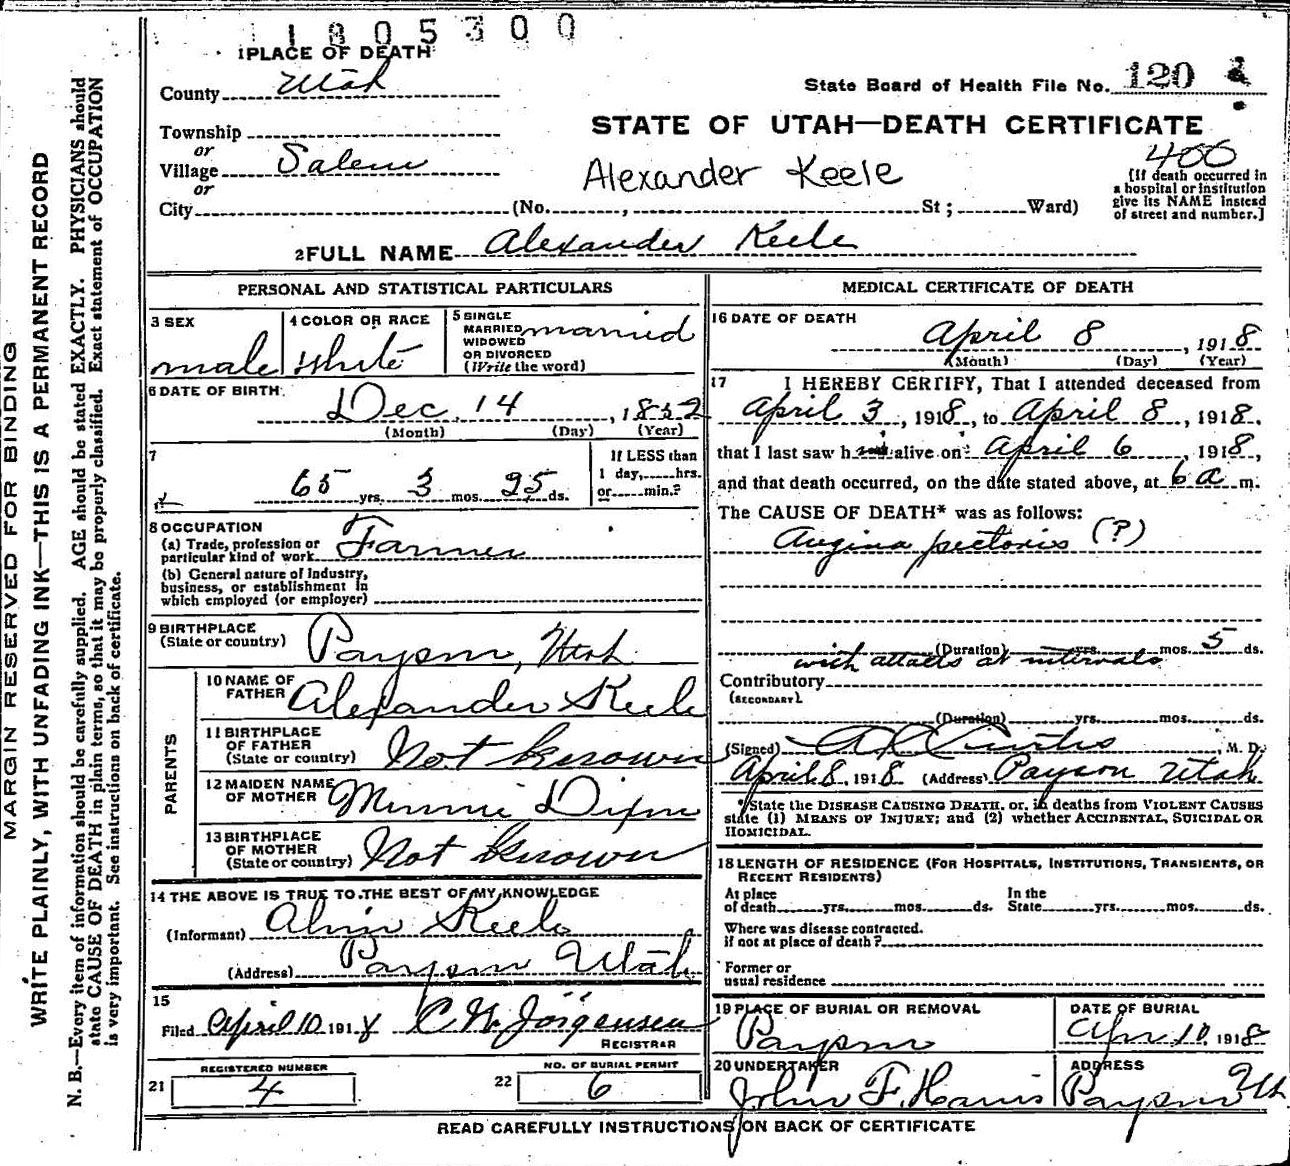 1805300
1 PLACE OF DEATH
County Utah
State Board of Health File No. 120
Township
or
Village Salem
or
City (No. , St ; Ward)
STATE OF UTAH—DEATH CERTIFICATE
400
Alexander Keele
[If death occurred in
a hospital or institution
give its NAME instead
of street and number.]
2 FULL NAME Alexander Keele
PERSONAL AND STATISTICAL PARTICULARS
3 SEX
male
4 COLOR OR RACE
White
5 SINGLE
MARRIED married
WIDOWED
OR DIVORCED
(Write the word)
6 DATE OF BIRTH
Dec. 14, 1852
(Month) (Day) (Year)
7
65 yrs. 3 mos. 25 ds.
If LESS than
1 day, hrs.
or min.?
8 OCCUPATION
(a) Trade, profession or
particular kind of work Farmer
(b) General nature of industry,
business, or establishment in
which employed (or employer)
9 BIRTHPLACE
(State or country) Payson, Utah
PARENTS
10 NAME OF
FATHER Alexander Keele
11 BIRTHPLACE
OF FATHER
(State or country) Not Known
12 MAIDEN NAME
OF MOTHER Minnie Dixon
13 BIRTHPLACE
OF MOTHER
(State or country) Not Known
14 THE ABOVE IS TRUE TO THE BEST OF MY KNOWLEDGE
(Informant) Alvin Keele
(Address) Payson Utah
15
Filed April 10 1918 C. W. Jörgensen
REGISTRAR
REGISTERED NUMBER
21 4
NO. OF BURIAL PERMIT
22 6
MEDICAL CERTIFICATE OF DEATH
16 DATE OF DEATH
April 8, 1918
(Month) (Day) (Year)
17 I HEREBY CERTIFY, That I attended deceased from
April 3, 1918, to April 8, 1918,
that I last saw him alive on April 6, 1918,
and that death occurred, on the date stated above, at 6 a m.
The CAUSE OF DEATH* was as follows:
Angina pectoris (?)
(Duration) yrs. mos. 5 ds.
with attacks at intervals
Contributory
(SECONDARY)
(Duration) yrs. mos. ds.
(Signed) A C Curtis, M. D.
April 8, 1918 (Address) Payson Utah
*State the DISEASE CAUSING DEATH, or, in deaths from VIOLENT CAUSES
state (1) MEANS OF INJURY; and (2) whether ACCIDENTAL, SUICIDAL OR
HOMICIDAL.
18 LENGTH OF RESIDENCE (FOR HOSPITALS, INSTITUTIONS, TRANSIENTS, OR
RECENT RESIDENTS)
At place
of death yrs. mos. ds.
In the
State yrs. mos. ds.
Where was disease contracted.
if not at place of death?
Former or
usual residence
19 PLACE OF BURIAL OR REMOVAL
Payson
DATE OF BURIAL
Apr 10, 1918
20 UNDERTAKER
John F. Harris
ADDRESS
Payson Ut
READ CAREFULLY INSTRUCTIONS ON BACK OF CERTIFICATE
MARGIN RESERVED FOR BINDING
WRITE PLAINLY, WITH UNFADING INK—THIS IS A PERMANENT RECORD
N. B.—Every item of information should be carefully supplied. AGE should be stated EXACTLY. PHYSICIANS should
state CAUSE OF DEATH in plain terms, so that it may be properly classified. Exact statement of OCCUPATION
is very important. See instructions on back of certificate.